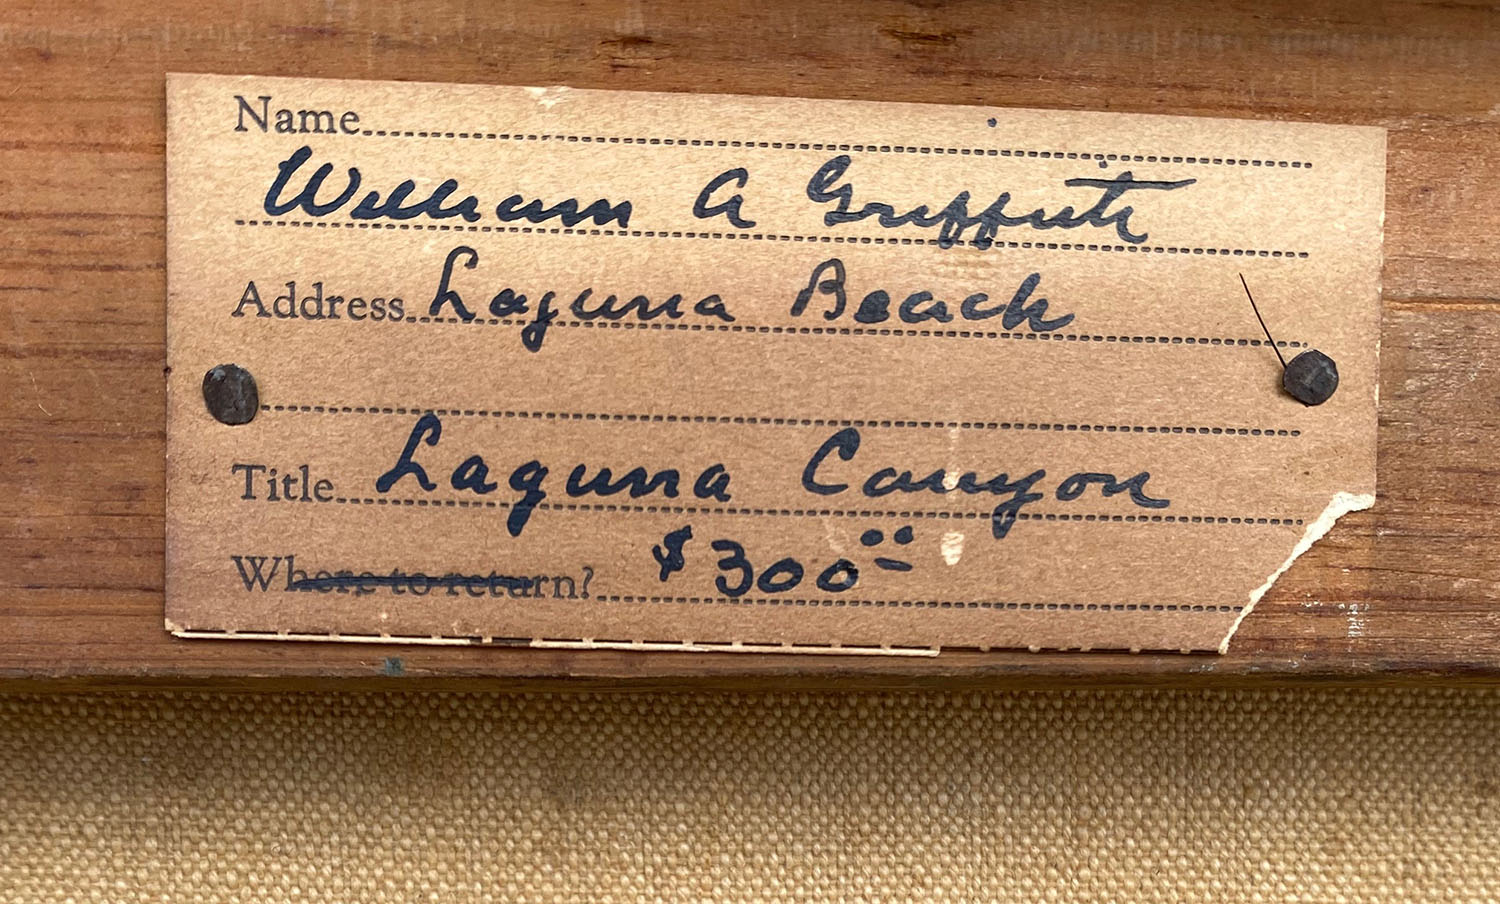 Name
William A Griffith
Address Laguna Beach
Title Laguna Canyon
Where to return? $300.00